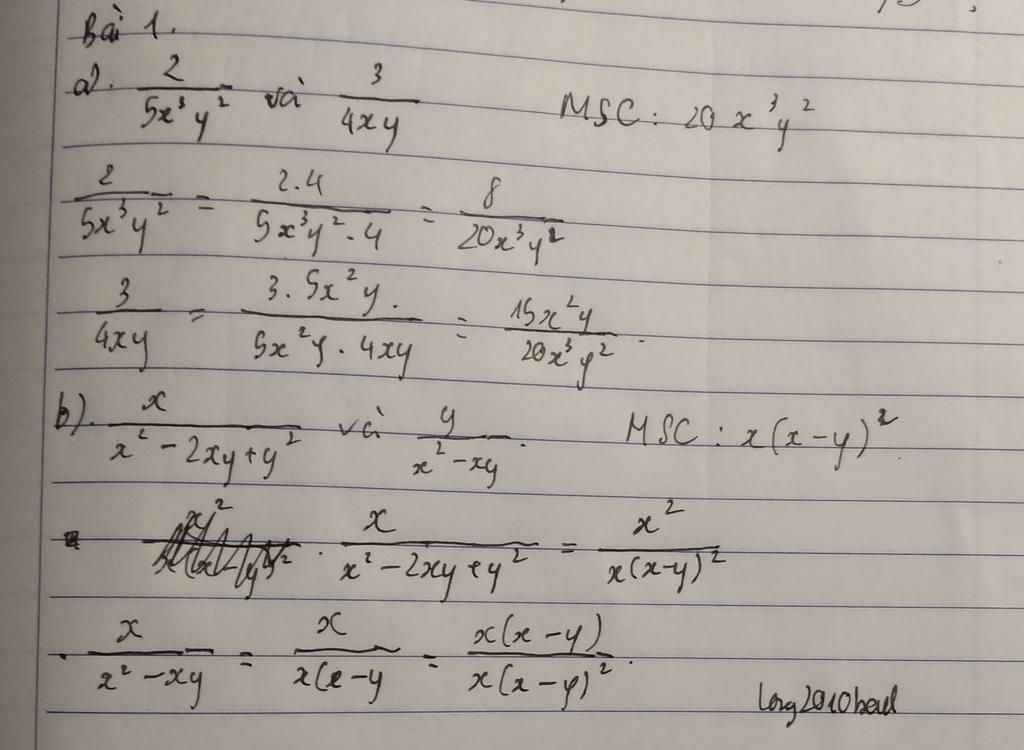 Bài 1.
a). 2/(5x³y²) và 3/(4xy) MSC: 20x³y²
2/(5x³y²) = (2.4)/(5x³y².4) = 8/(20x³y²)
3/(4xy) = (3.5x²y.)/(5x²y.4xy) = (15x²y)/(20x³y²).
b). x/(x²-2xy+y²) và y/(x²-xy). MSC: x(x-y)²
. x/(x²-2xy+y²) = x²/(x(x-y)²)
. x/(x²-xy) = x/(x(x-y) = (x(x-y))/(x(x-y)²).